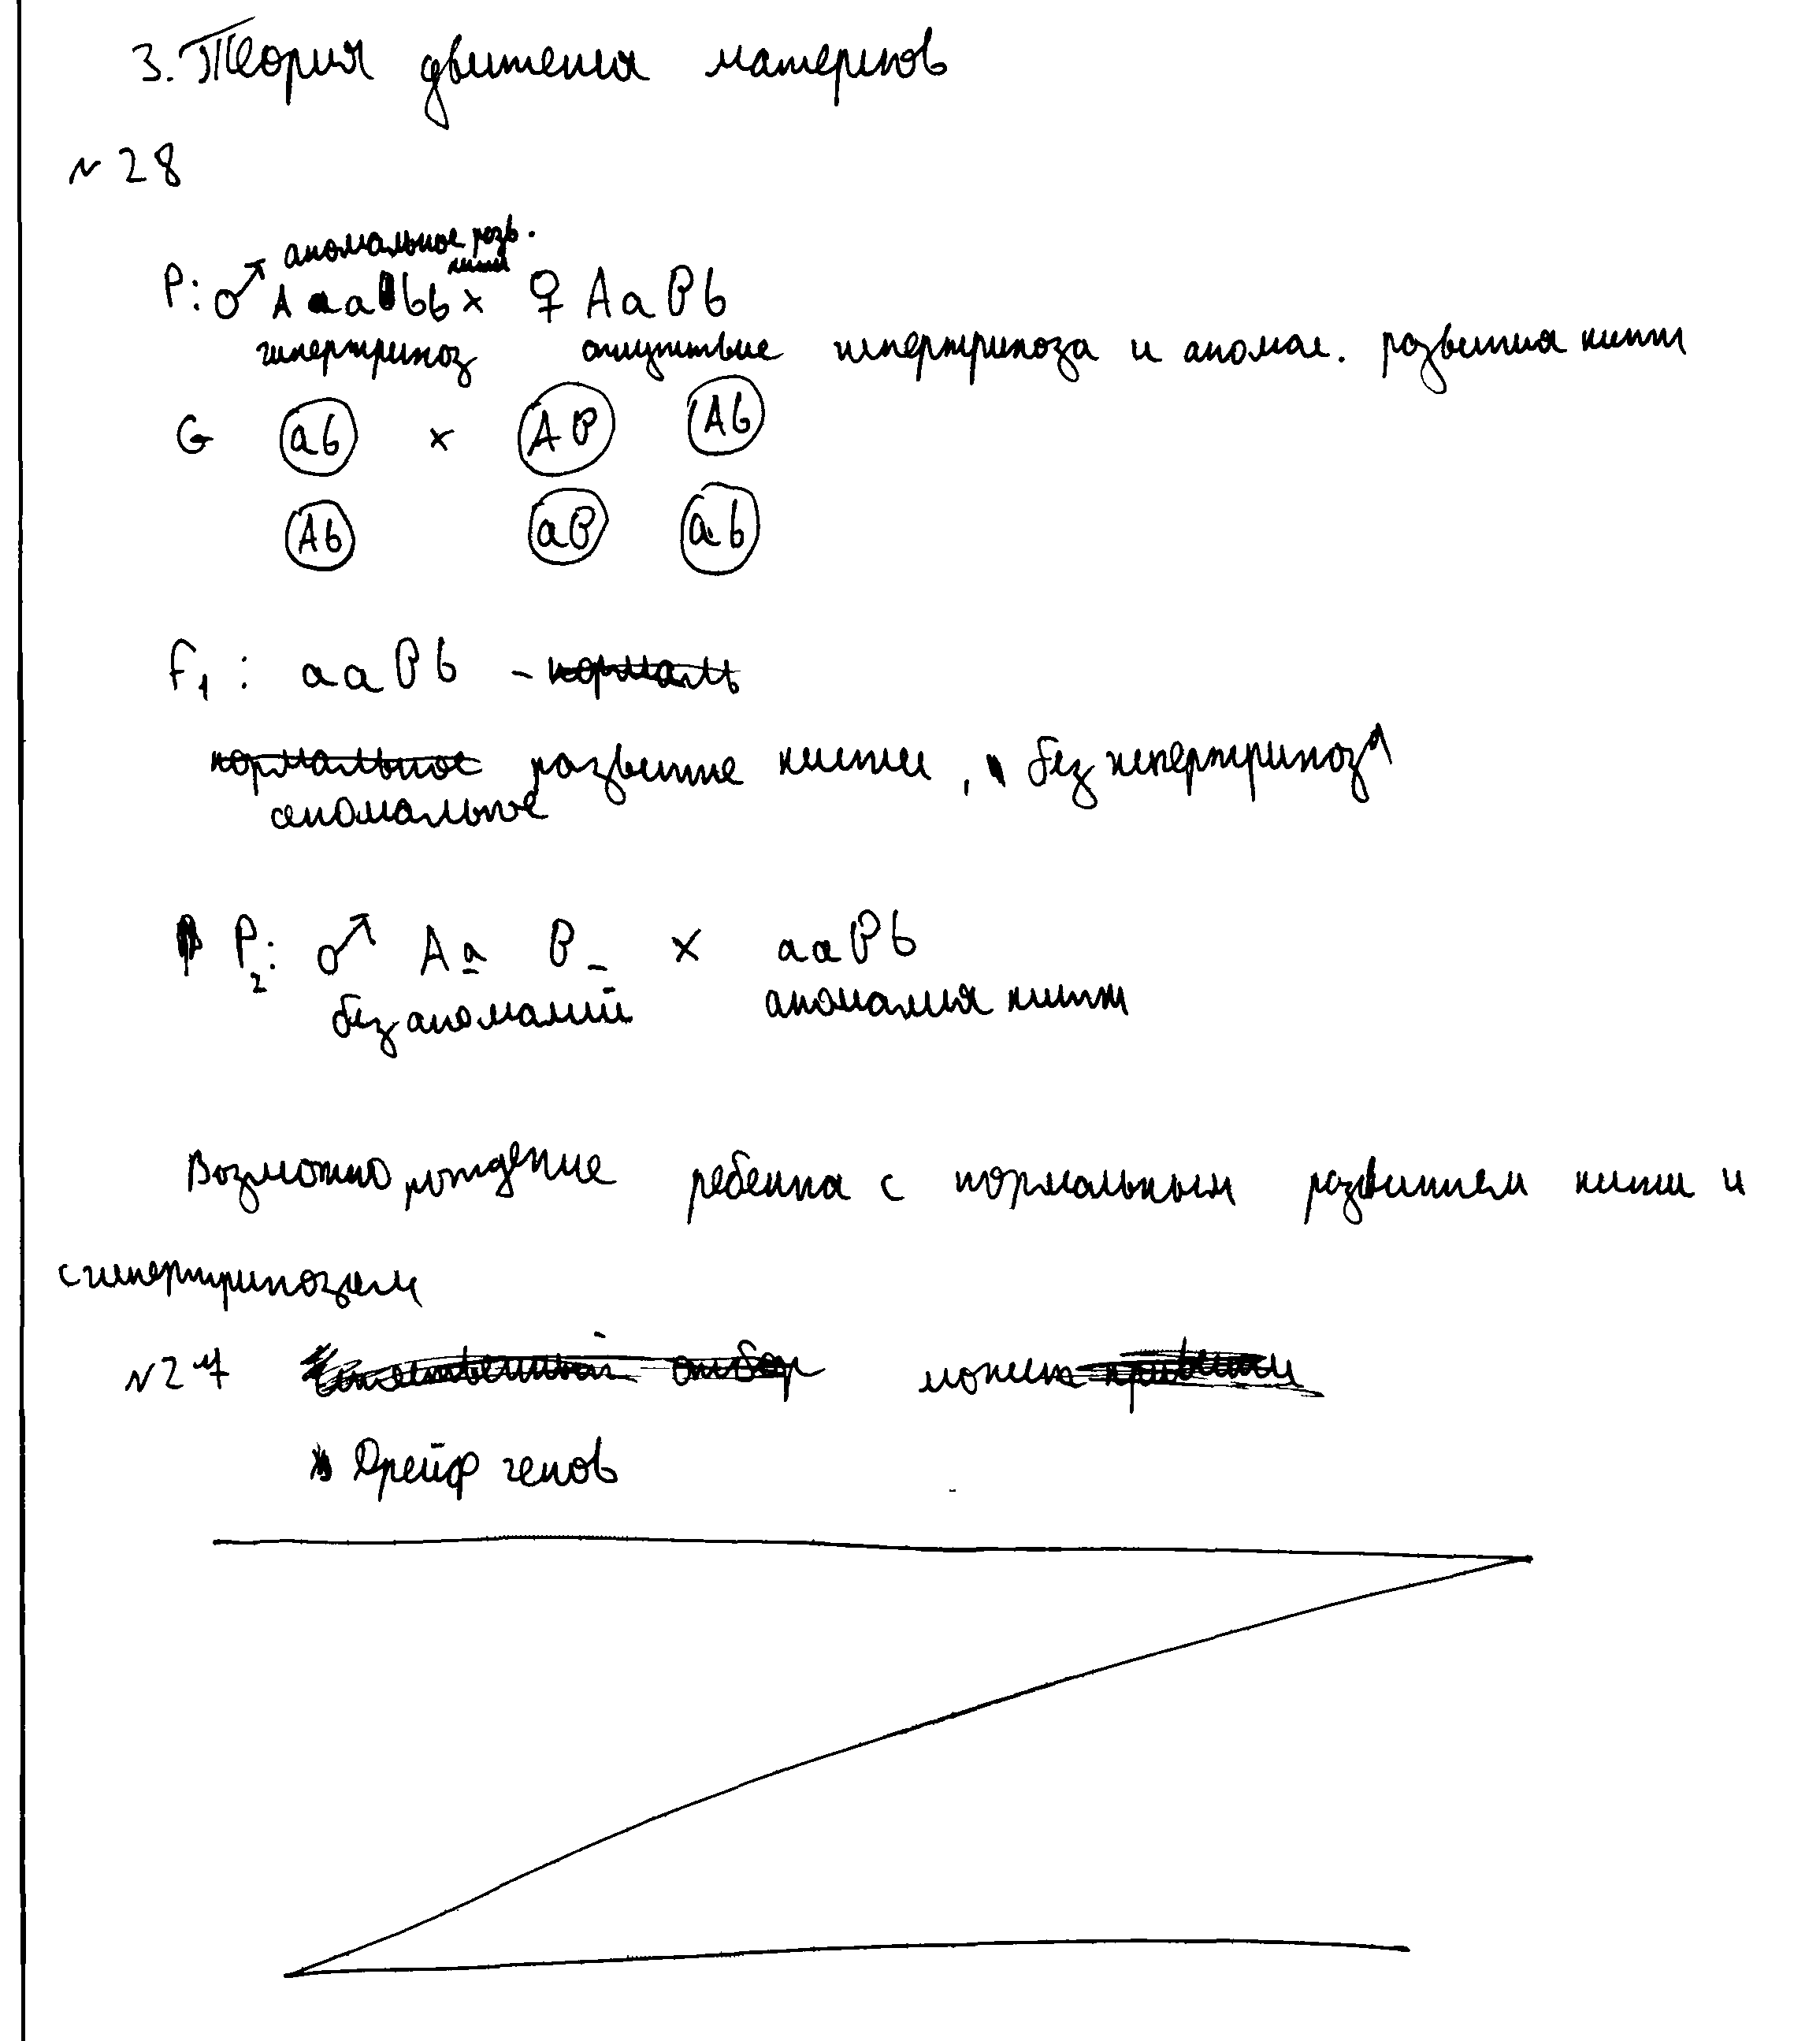 3. Теория движения материков
№28
аномальное разв.
кисти
P: ♂ Aabb x ♀ AaBb
гипертрихоз отсутствие гипертрихоза и аномал. развития кисти
G ab x AB Ab
Ab aB ab
F1: aaBb - нормаль
нормальное развитие кисти, без гипертрихоза
аномальное
P2: ♂ Aa B_ x aaBb
без аномалий аномалия кисти
Возможно рождение ребенка с нормальным развитием кисти и
с гипертрихозом
№27 отбор может
Дрейф генов